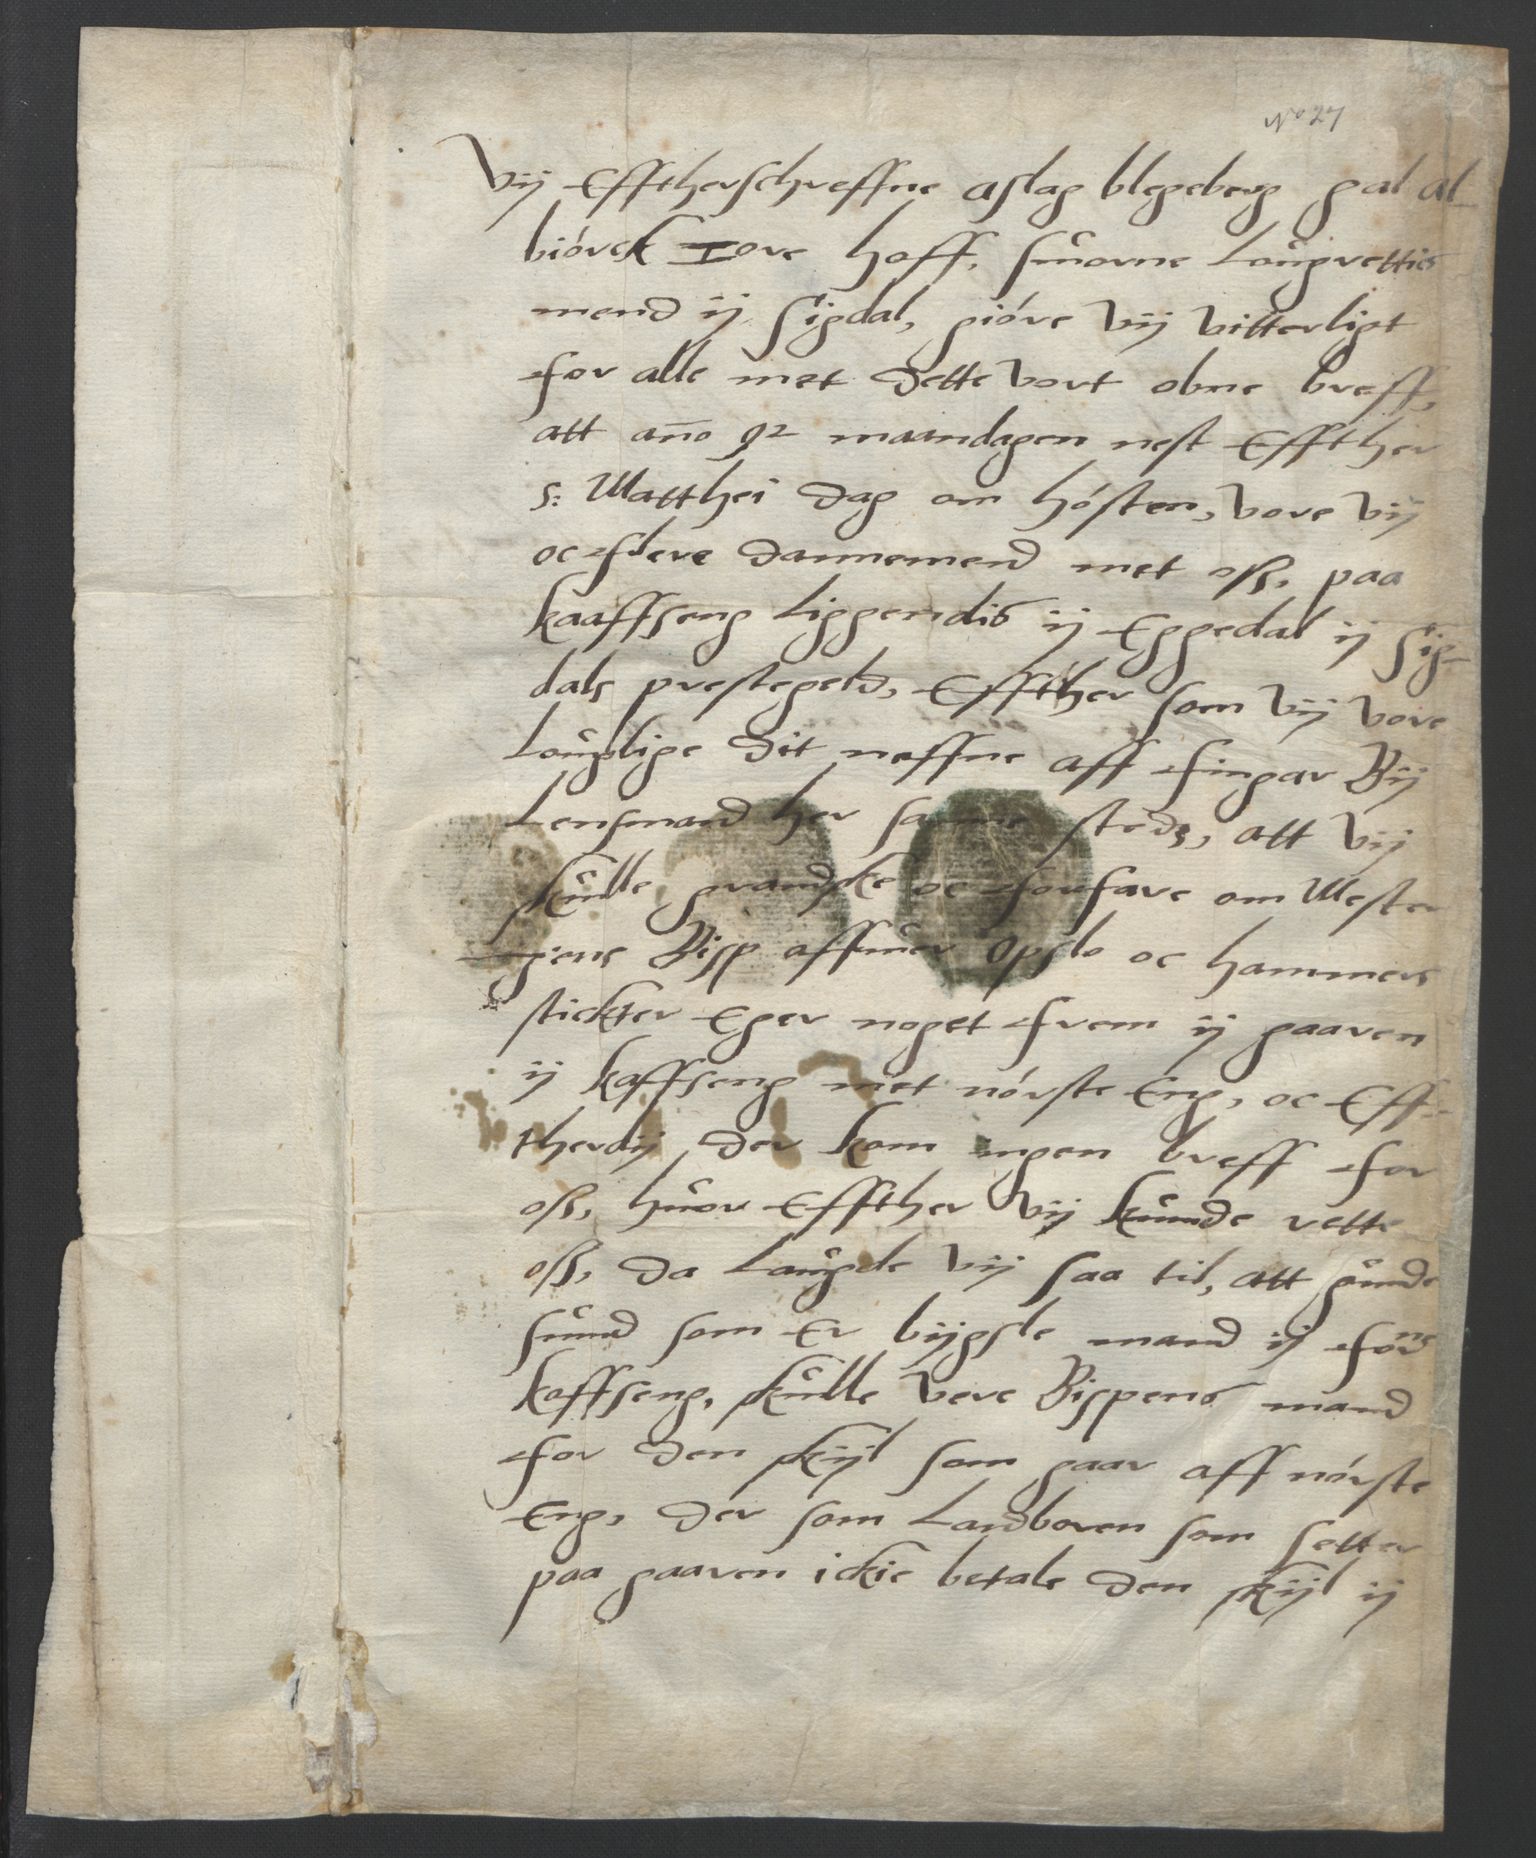 No 27
Vij Efftherschreffne aslag blegeberg pal al-
biörck Tore hoff, suorne Lougrettis
mend ij Sigdal, giöre Vij Vitterligt
for alle met dette Vort obne breff,
att año 92 maandagen nest Effther
S: Matthei dag om hösten, Vore Vij
oc flere dannemend met oss, paa
kaaffseng Liggendis ij Eggedal ij Sig-
dals prestegeld, Effther som Vij Vore
Louglige dit neffne aff fingar Bij
Lensmand her samme steds, att Vij
skulle grandske oc forfare om Mester
jens Bisp offuer Opslo oc hammers
stickter Eger noget frem ij gaaren
ij kaffseng met nörste Eng, oc Eff-
therdij der kom ingen breff for
oss, huor Effther Vij kunde rette
oss, da Laugde Vij saa til, att gunde
sund som Er bijgsle mand ij forne
kaffseng, skulle Vere Bispens mand
for den skijl som gaar aff nörste
Eng, der som Landboren som setter
paa gaaren ickie betale den skijl ij